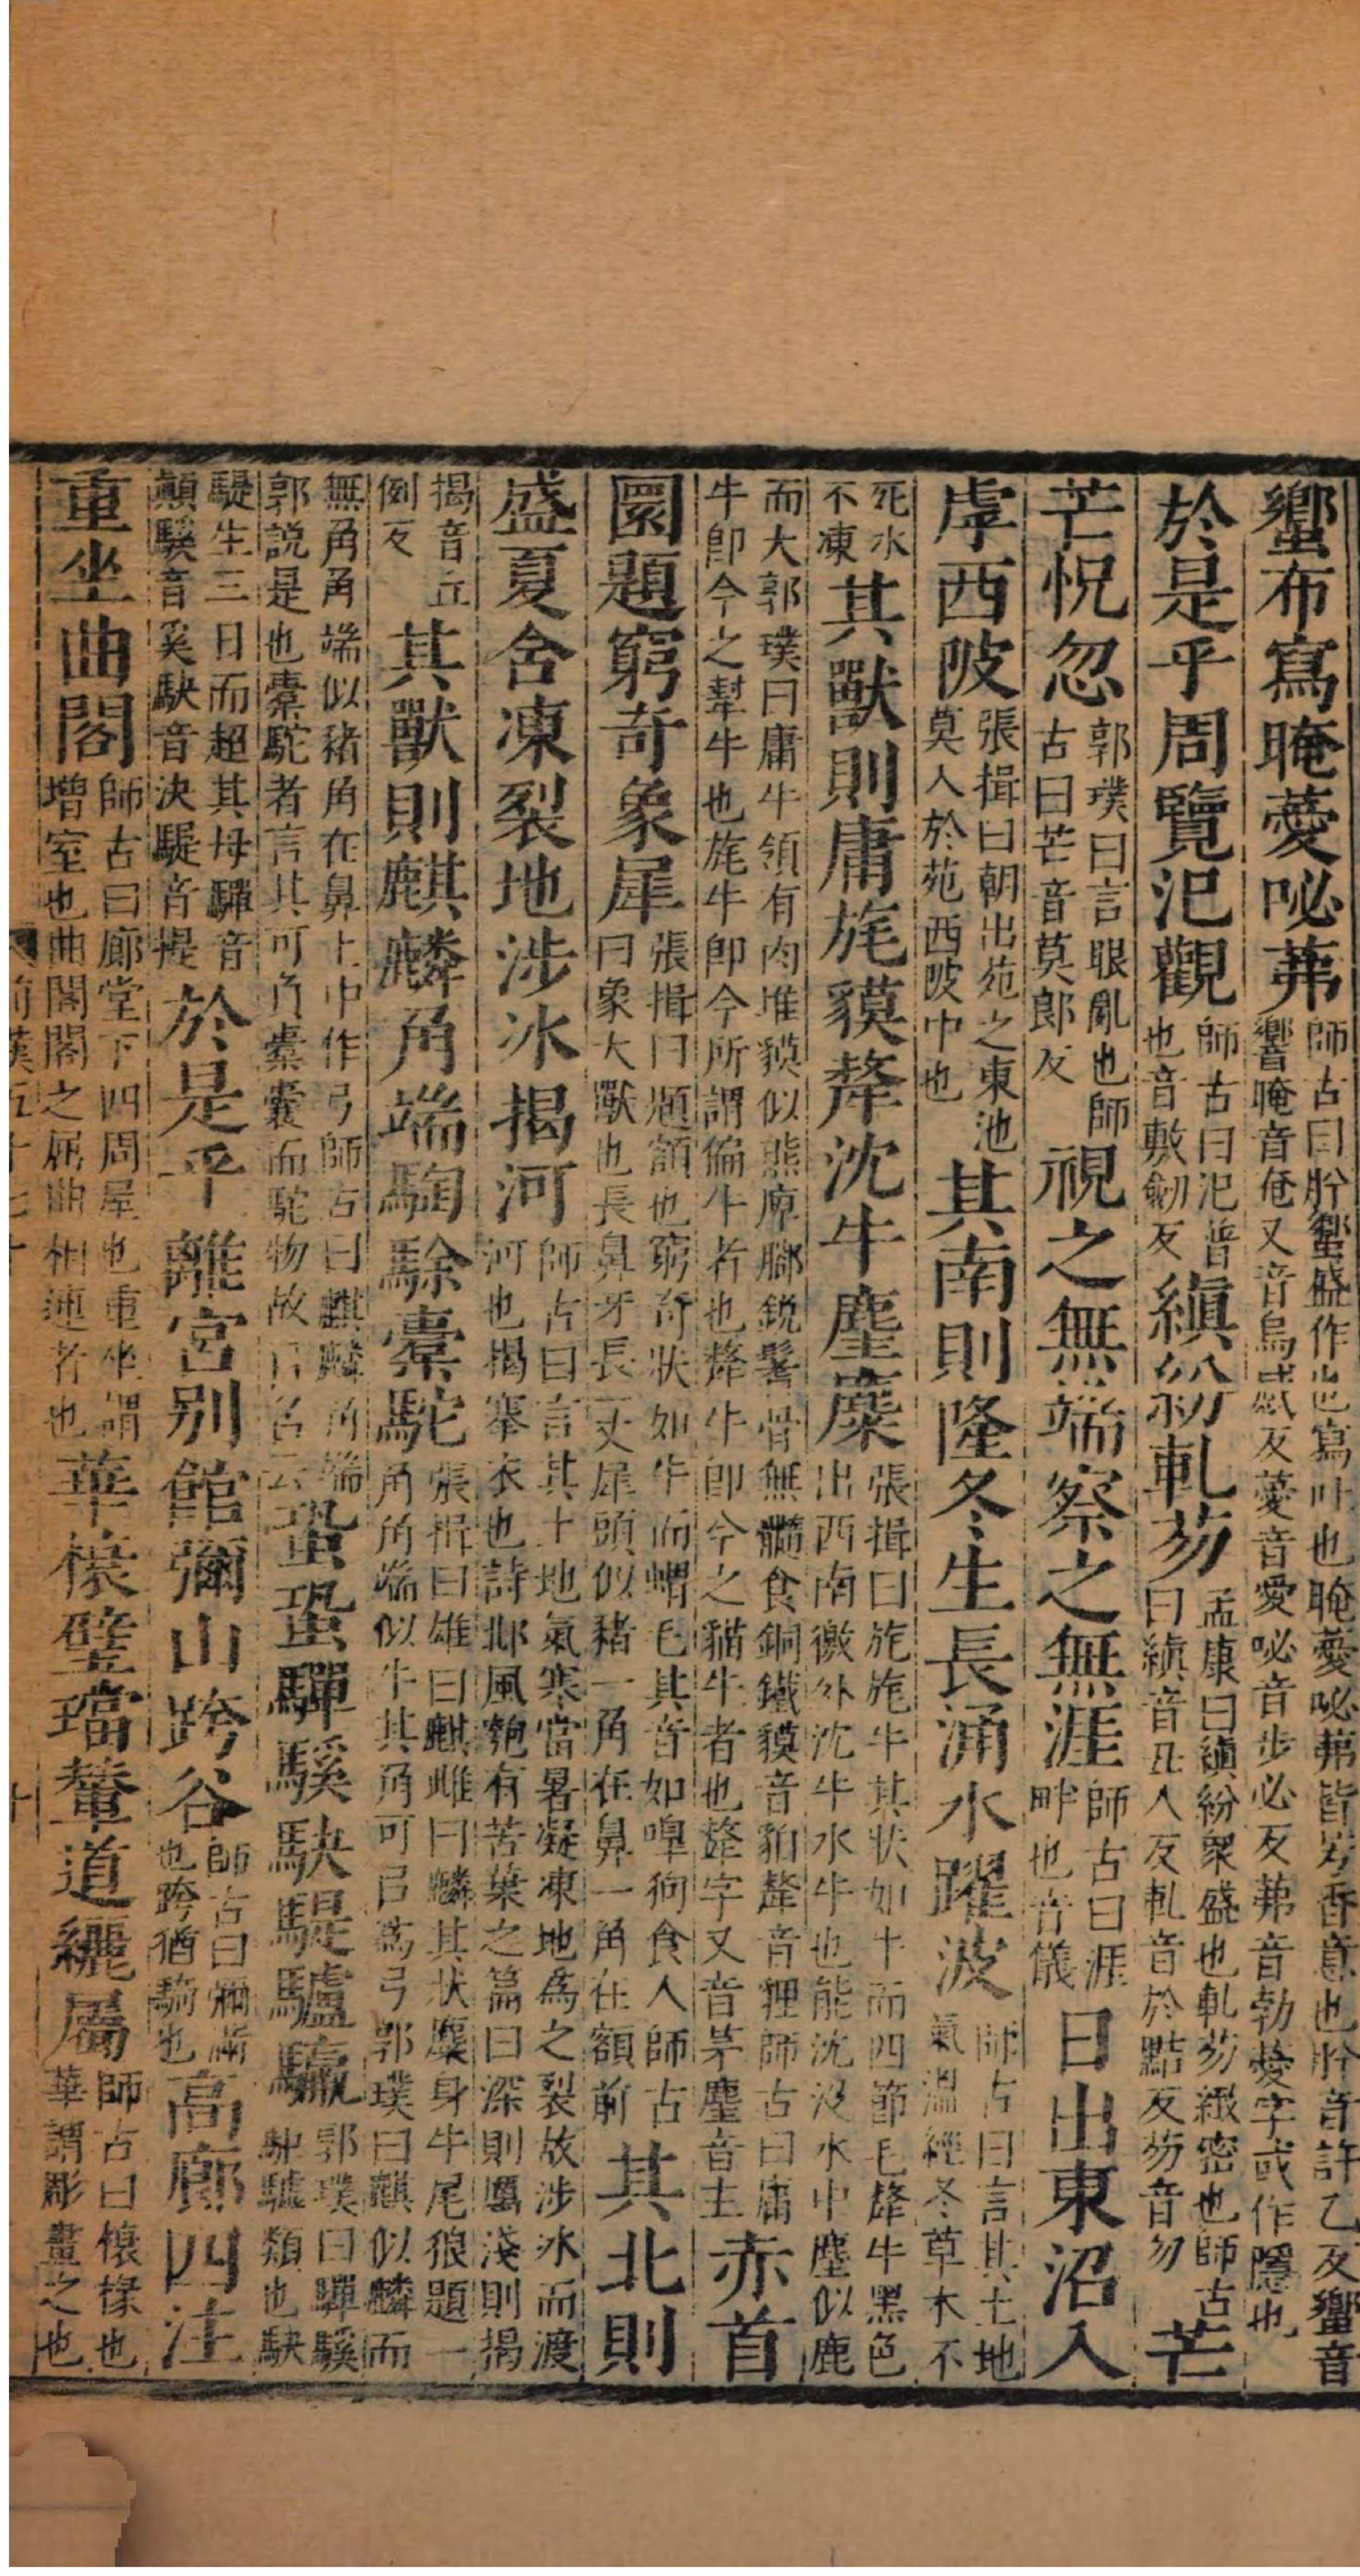 蠁布寫晻薆咇茀師古曰肸蠁盛作也寫吐也晻薆咇茀皆芳香意也肸音許乙反蠁音
響晻音奄又音烏感反薆音愛咇音步必反茀音勃薆字或作隱也
於是乎周覽氾觀師古曰氾普
也音敷劒反縝紛軋芴孟康曰縝紛衆盛也軋芴緻密也師古
曰縝音丑人反軋音於點反芴音勿芒
芒怳忽郭璞曰言眼亂也師
古曰芒音莫郎反視之無端察之無涯師古曰涯
畔也音儀日出東沼入
虖西陂張揖曰朝出苑之東池
莫入於苑西陂中也其南則隆冬生長涌水躍波師古曰言其土地
氣溫經冬草木不
死水
不凍其獸則庸旄貘犛沈牛麈麋張揖曰旄旄牛其狀如牛而四節毛犛牛黑色
出西南徼外沈牛水牛也能沈沒水中麈似鹿
而大郭璞曰庸牛領有肉堆貘似熊庳腳銳鬐骨無髓食銅鐵貘音貊犛音狸師古曰庸
牛卽今之犎牛也旄牛卽今所謂偏牛者也犛牛卽今之貓牛者也犛字又音茅麈音主赤首
圜題窮奇象犀張揖曰題額也窮奇狀如牛而蝟毛其音如嘷狗食人師古
曰象大獸也長鼻牙長一丈犀頭似豬一角在鼻一角在額前其北則
盛夏含凍裂地涉冰揭河師古曰言其土地氣寒當暑凝凍地爲之裂故涉冰而渡
河也揭搴衣也詩邶風匏有苦葉之篇曰深則厲淺則揭
揭音丘
例反其獸則麒麟角端騊駼橐駝張揖曰雄曰麒雌曰麟其狀麋身牛尾狼題一
角角端似牛其角可㠯爲弓郭璞曰麒似麟而
無角角端似豬角在鼻上中作弓師古曰麒麟角端
郭說是也橐駝者言其可負橐囊而駝物故㠯名云蛩蛩驒騱駃騠驢驘郭璞曰驒騱
駏驉類也駃
騠生三日而超其母驒音
顛騱音奚駃音決騠音提於是乎離宮別館彌山跨谷師古曰彌滿
也跨猶騎也高廊四注
重坐曲閣師古曰廊堂下四周屋也重坐謂
增室也曲閣閣之屈曲相連者也華榱璧璫輦道纚屬師古曰榱椽也
華謂彫畫之也
前漢五十七上
十